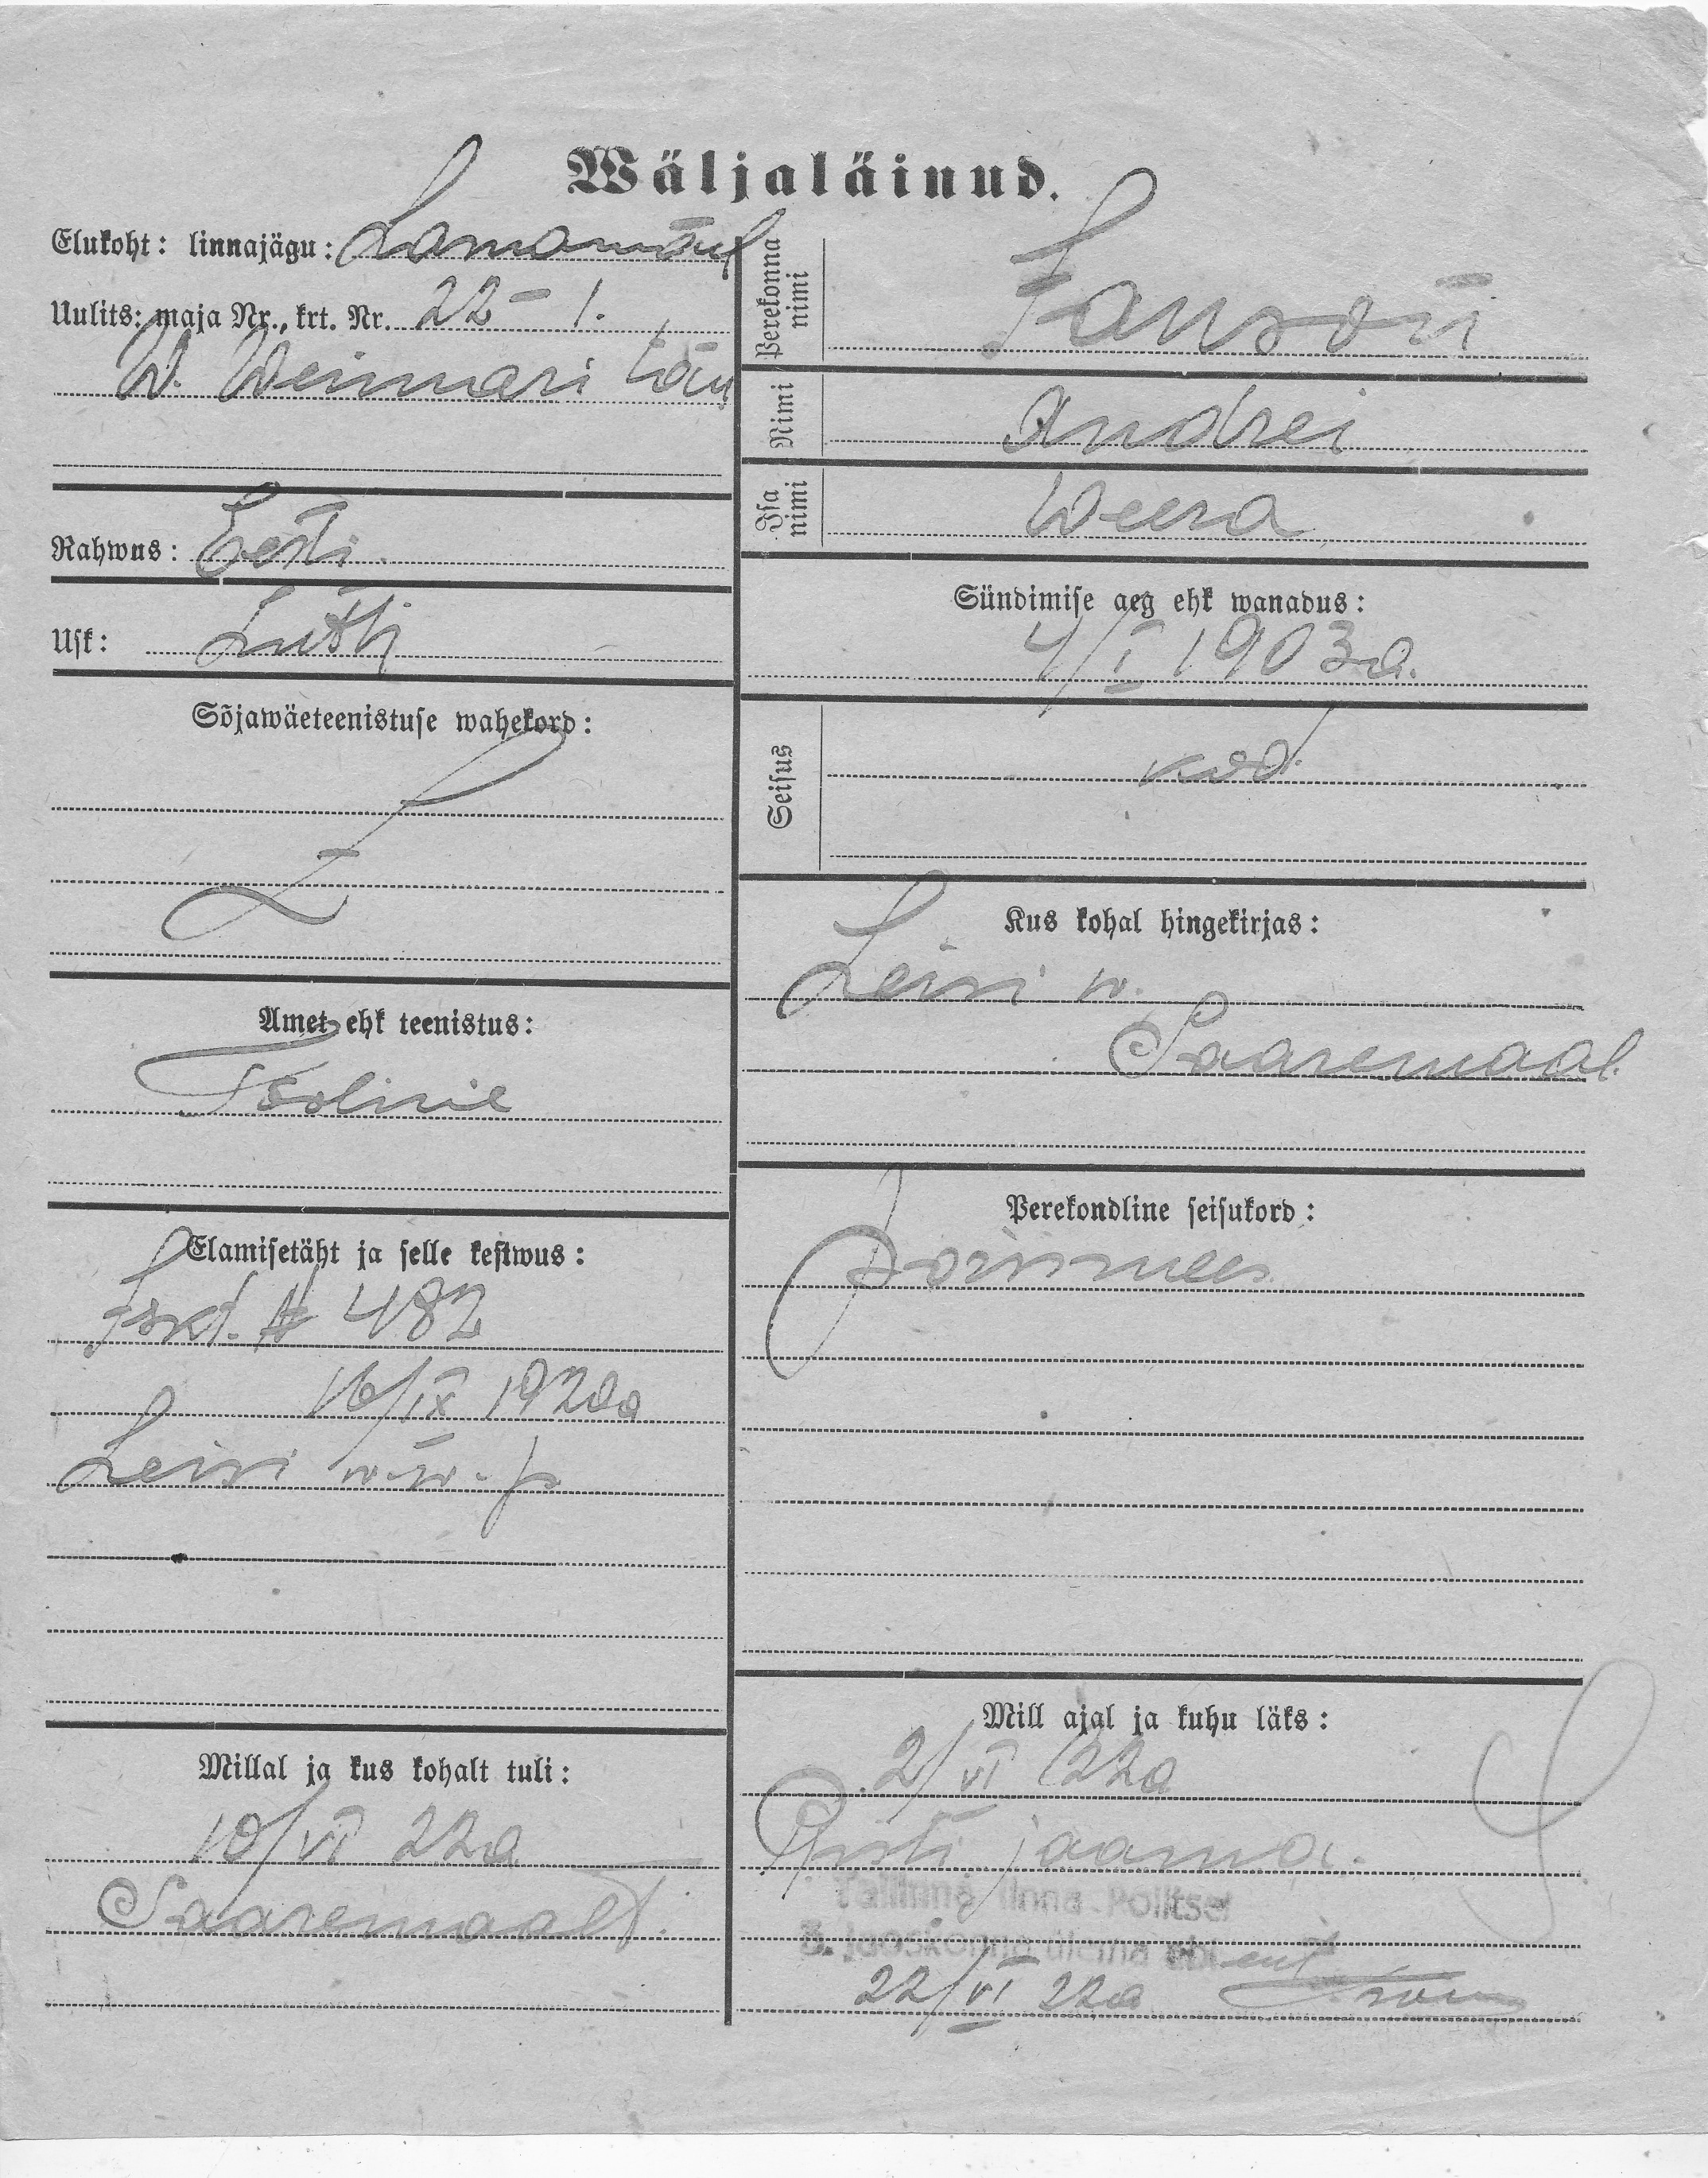 Wäljaläinud.
Elukoht: linnajägu: Lasnamäel
Uulits: maja Nr., krt. Nr. 22 – 1.
W. Weimari tän
Rahwus: Eesti
Usk: Luth
Sõjawäeteenistuse wahekord:
Amet ehk teenistus:
Tööline
Elamisetäht ja selle kestwus:
Iskt. # 482
16/IX 1920a
Leisi w. w. p
Millal ja kus kohalt tuli:
10/VI 22a
Saaremaalt.
Perekonna nimi
Janson
Nimi
Andrei
Isa nimi
Weera
Sündimise aeg ehk wanadus:
4/I 1903a.
Seisus
kod.
Kus kohal hingekirjas:
Leisi w.
Saaremaal.
Perekondline seisukord:
Poissmees
Mill ajal ja kuhu läks:
2/VI 22a
Risti jaama.
Tallinna linna Politsei
3. jaoskonna ülema abi
22/VI 22a